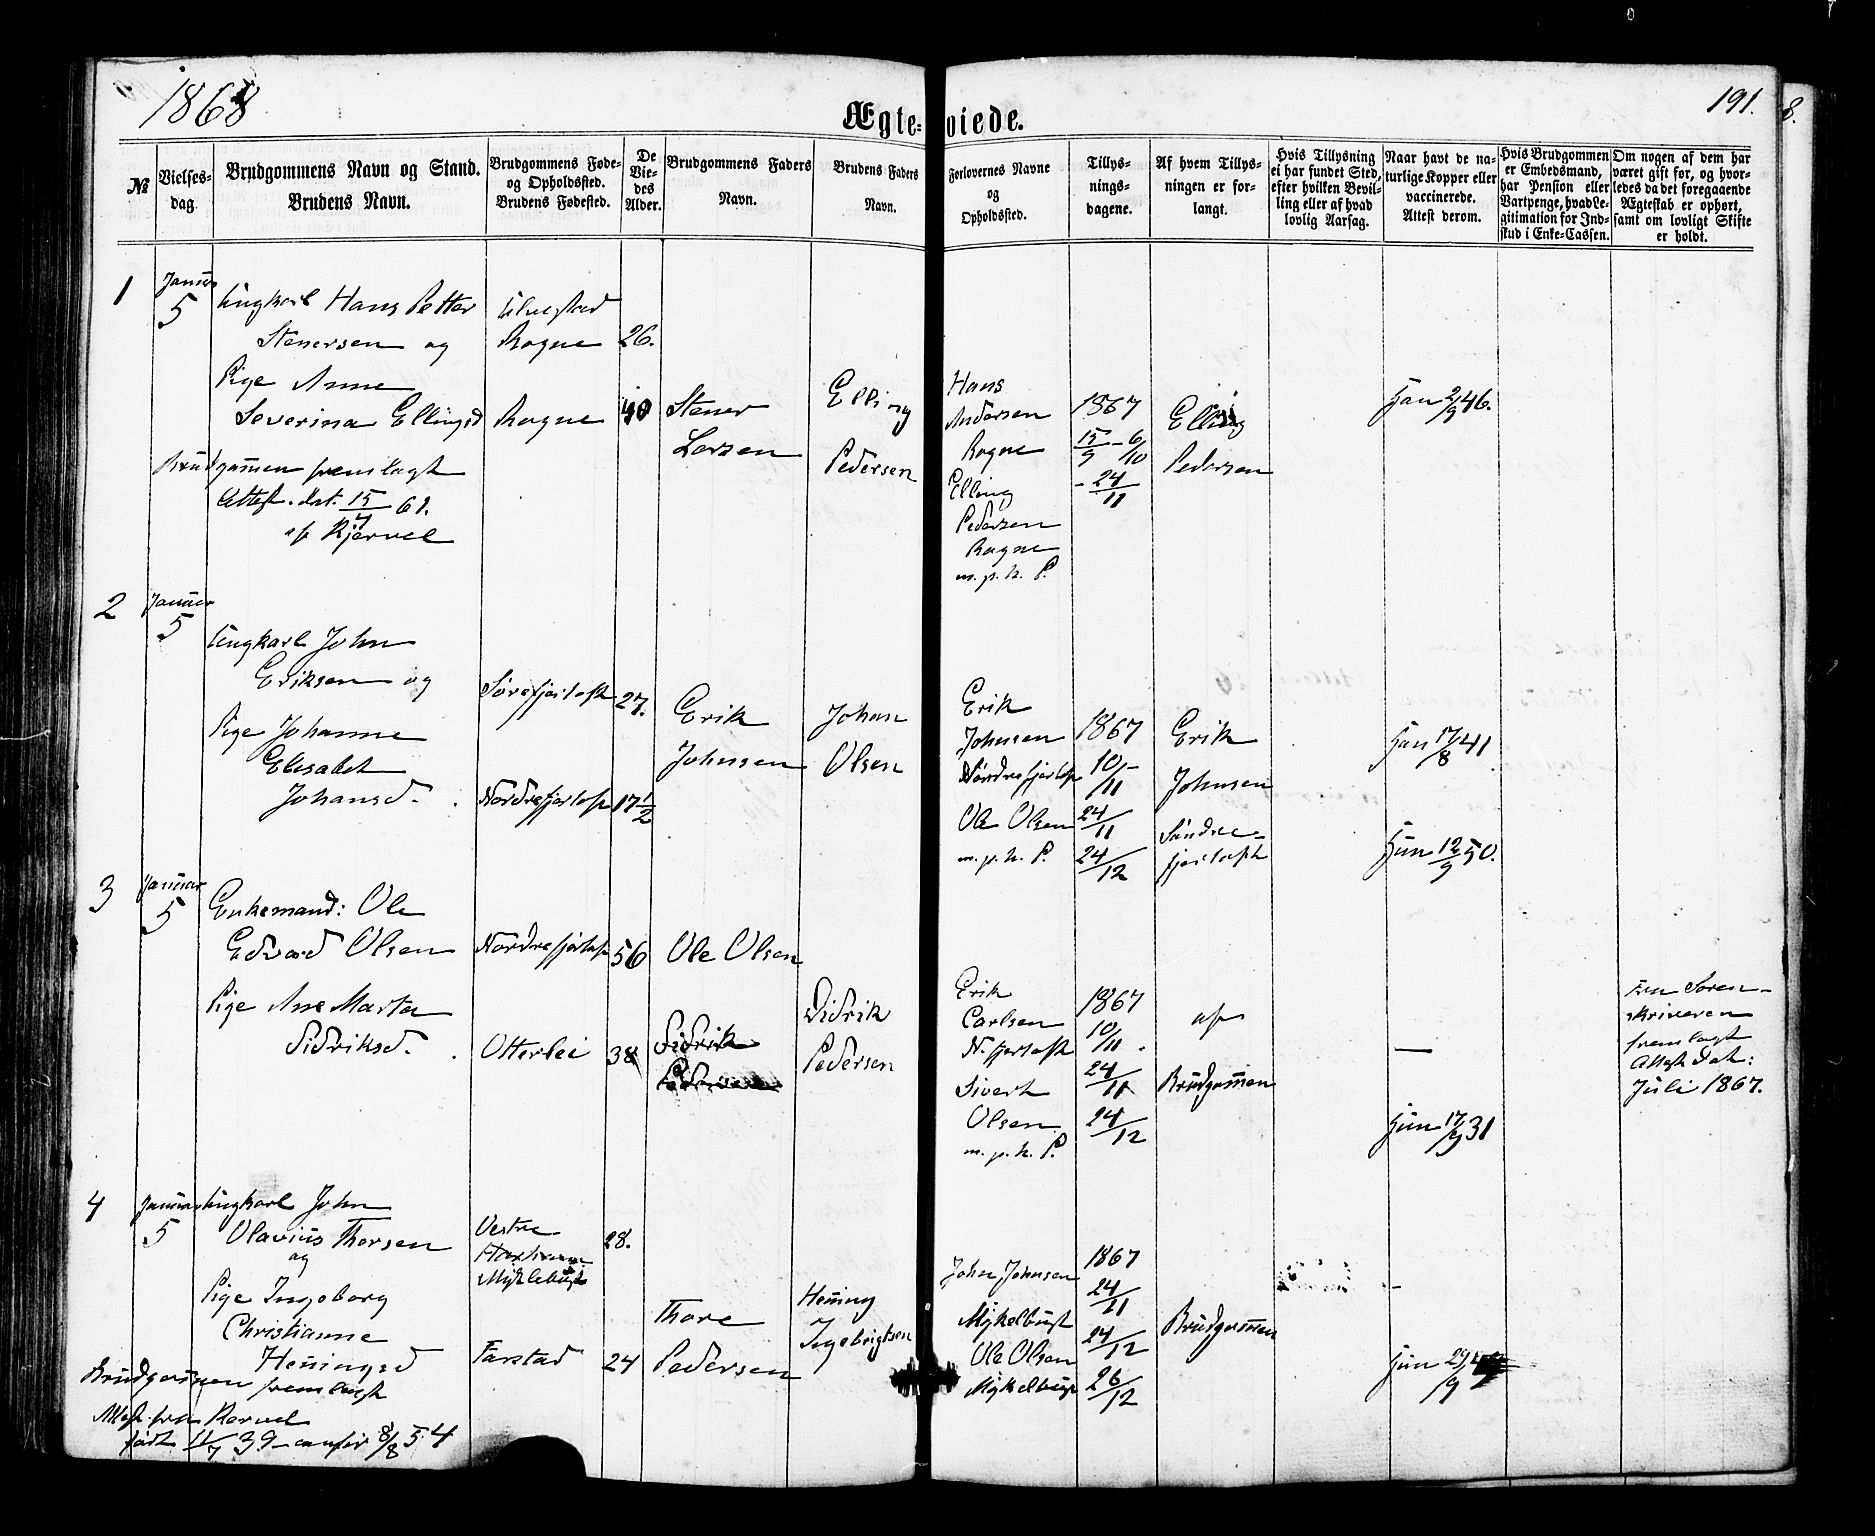 1868
Ægteviede.
191.
8.
№
Vielses-
dag
Brudgommens Navn og Stand.
Brudens Navn.
Brudgommens Føde-
og Opholdssted.
Brudens Fødested.
De
Vie-
des
Alder.
Brudgommens Faders
Navn.
Brudens Faders
Navn.
Forlovernes Navne
og
Opholdssted.
Tillys-
nings-
dagene.
Af hvem Tillys-
ningen er for-
langt.
Hvis Tillysning
ei har fundet Sted,
efter hvilken Bevil-
ling eller af hvad
lovlig Aarsag.
Naar havt de na-
turlige Kopper eller
vaccinerede.
Attest derom.
Hvis Brudgommen
er Embedsmand,
har Pension eller
Vartpenge, hvad Le-
gitimation for Ind-
skud i Enke-Cassen.
Om nogen af dem har
været gift før, og hvor-
ledes da det foregaaende
Ægteskab er ophørt,
samt om lovligt Skifte
er holdt.
1
Januar
5
Ungkarl Hans Petter
Stenersen og
Pige Anne
Severina Ellingsd
Brudgommen fremlagt
Attest. dat. 15/7 61.
af Kjervel
Ulvestad
Rogne
Rogne
26.
40
Stener
Larsen
Elling
Pedersen
Hans
Andersen
Rogne
Elling
Pedersen
Rogne
m. p. h. P.
1867
15/9 - 6/10
- 24/11
Elling
Pedersen
Han 2/9 46.
2
Januar
5
Ungkarl John
Eriksen og
Pige Johanne
Elisabet
Johansd.
Søre fjørtoft
Nordre fjørtoft
27.
17 1/2
Erik
Johnsen
Johan
Olsen
Erik
Johnsen
Nordre fjørtoft
Ole Olsen
m. p. h. P.
1867
10/11 -
24/11
24/12
Erik
Johnsen
Søndre
fjørtoft
Han 17/8 41
Hun 12/9 50.
3
Januar
5
Enkemand: Ole
Edvard Olsen
Pige Ane Marta
Didriksd.
Nordre fjørtoft
Otterlei
56
38
Ole Olsen
Didrik
Pedersen
Didrik
Pedersen
Erik
Carlsen
N. fjørtoft
Sivert
Olsen
m. p. h. P.
1867
10/11.
24/11
24/12
af
Brudgommen
—
Hun 17/9 31
Soren-
skriveren
fremlagt
Attest dat:
Juli 1867.
4
Januar
5
Ungkarl John
Olavius Thorsen
og
Pige Ingeborg
Christianne
Henningsd
Brudgommen fremlagt
Attest fra Kervel
født 11/7 39 – confir 8/8 54
Vestre
Myklebust
Farstad
28.
24
Thore
Pedersen
Hening
Ingebrigtsen
John Johnsen
Mykelbust
Ole Olsen
Mykelbust
1867
24/11
24/12
26/12
Brudgommen
-
Hun